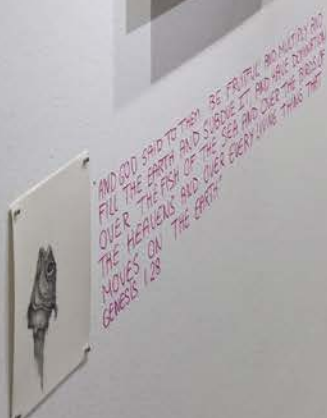 "AND GOD SAID TO THEM, BE FRUITFUL AND MULTIPLY AND
FILL THE EARTH AND SUBDUE IT, AND HAVE DOMINION
OVER THE FISH OF THE SEA AND OVER THE BIRDS OF
THE HEAVENS AND OVER EVERY LIVING THING THAT
MOVES ON THE EARTH"
GENESIS 1:28